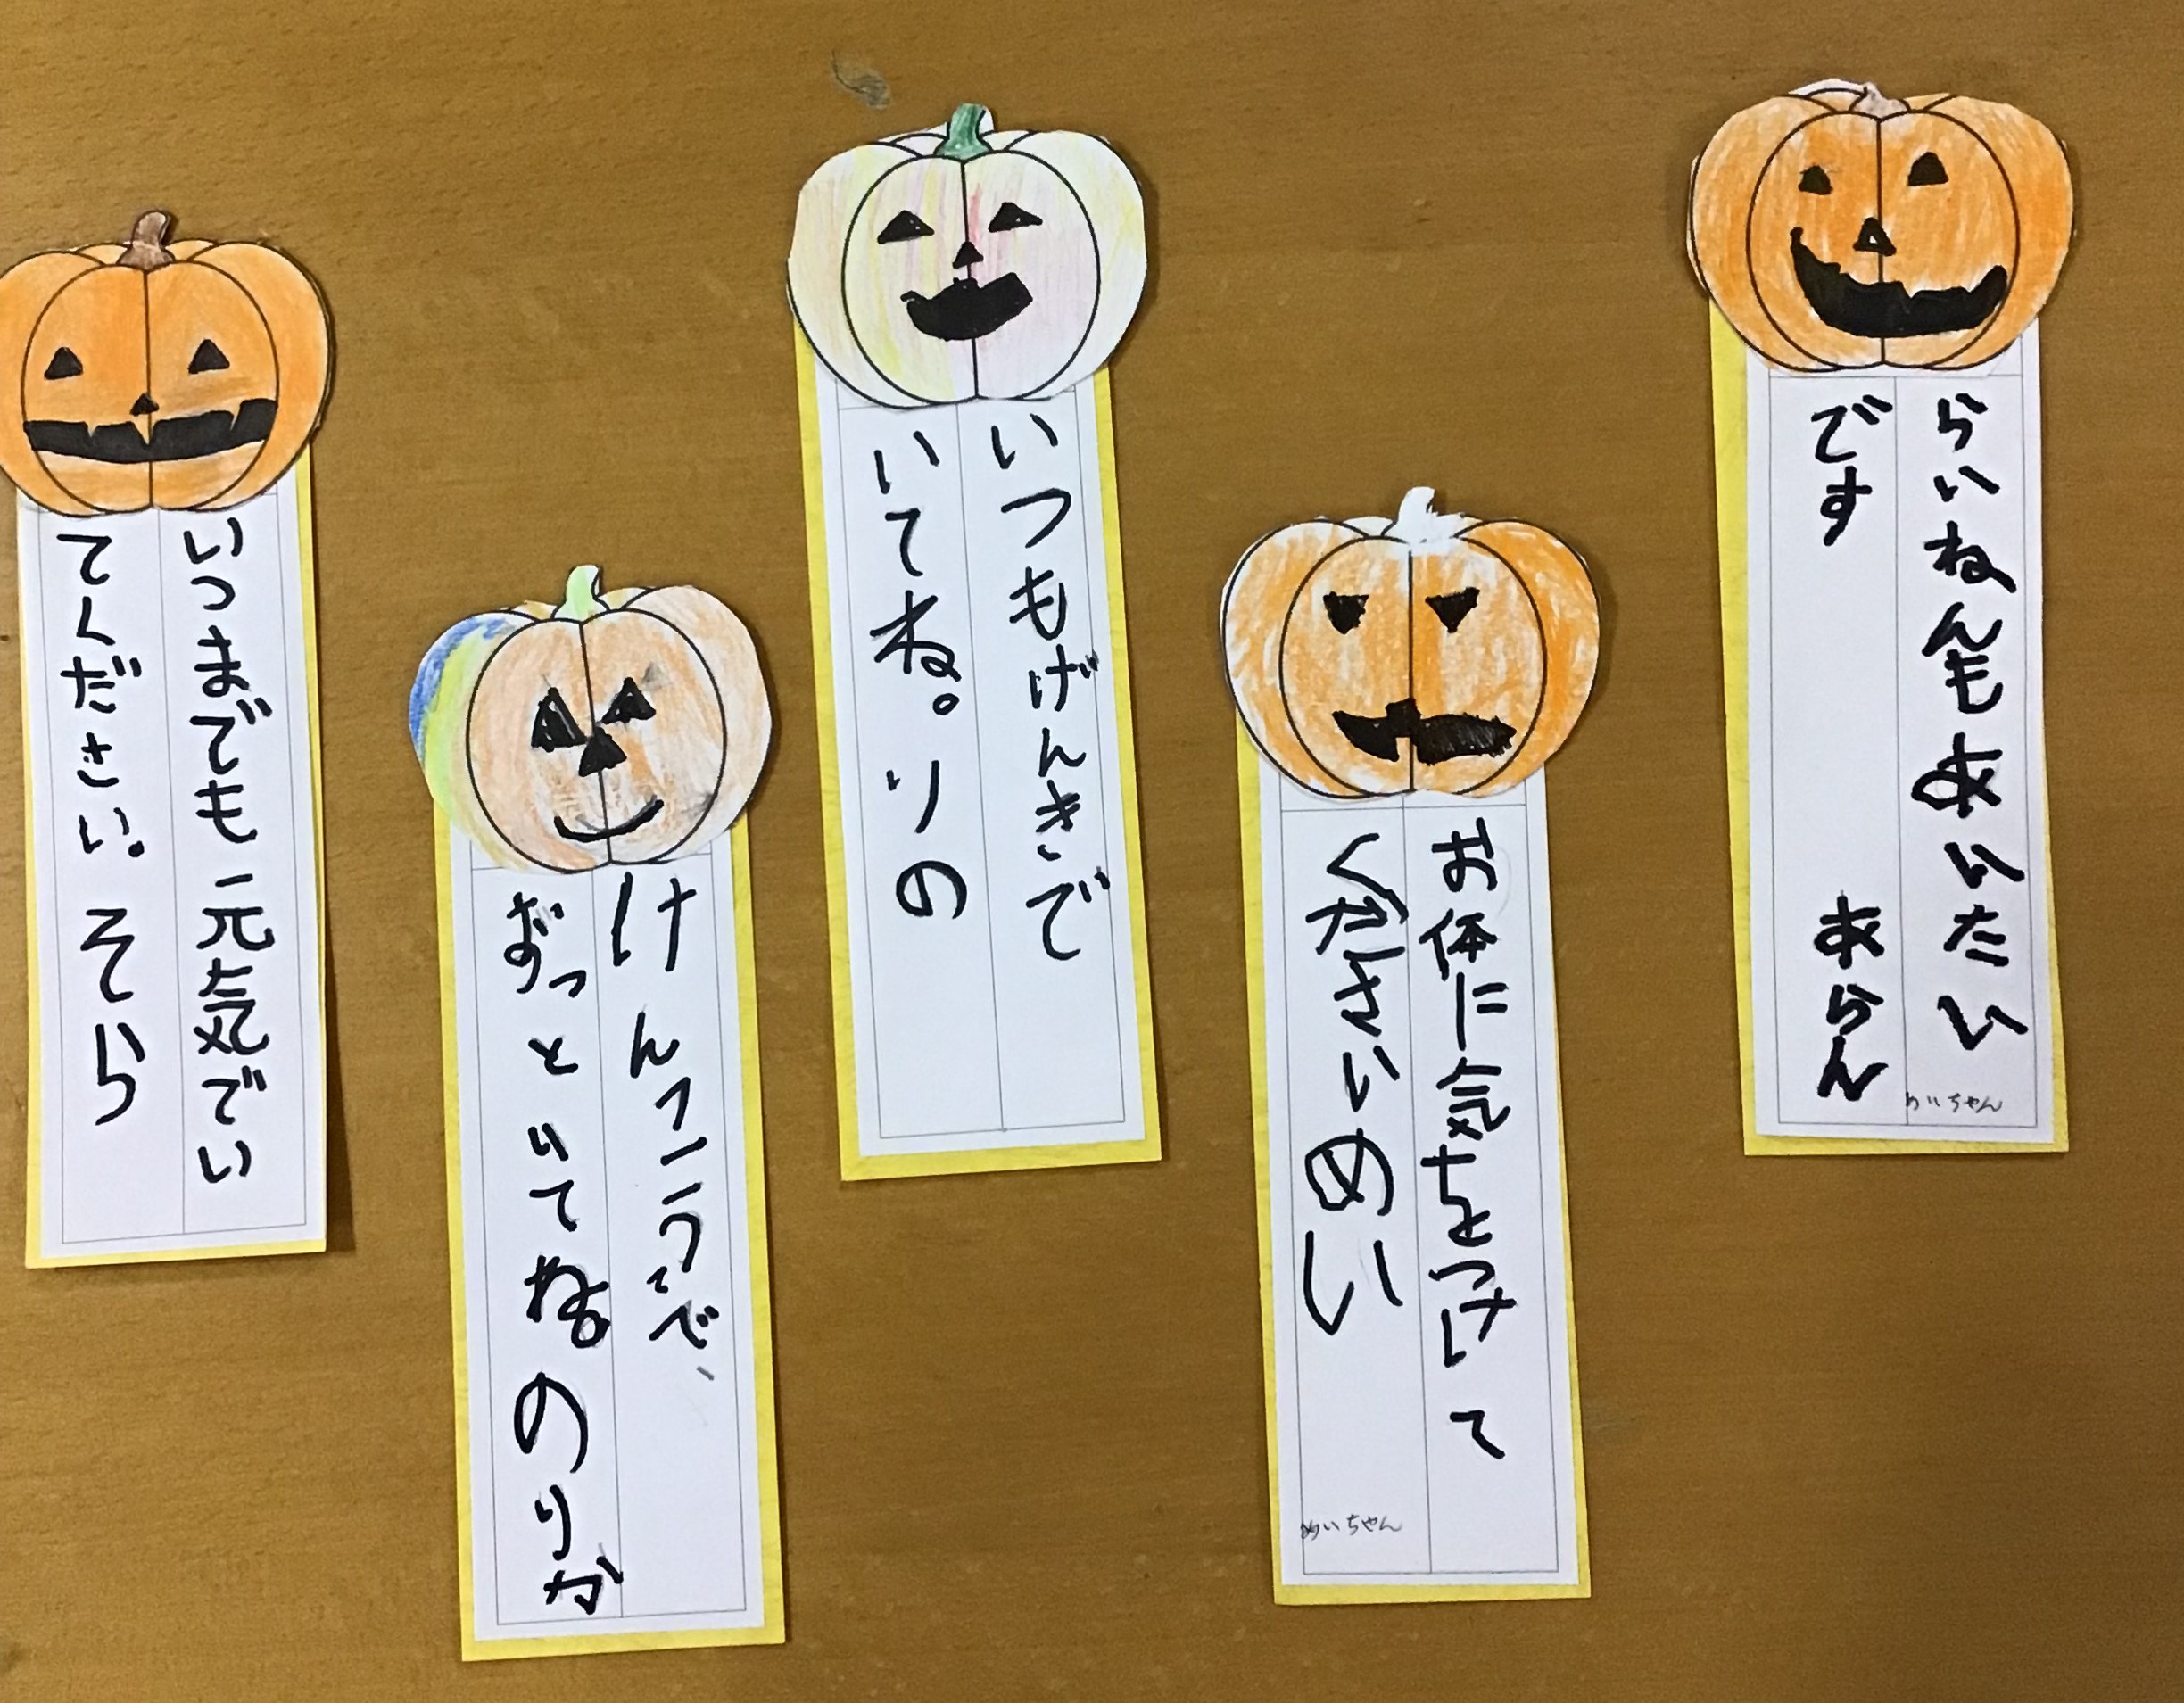 らいねんもあいたい
です あらん
お体に気をつけて
くださいめい
めいちゃん
いつもげんきで
いてね。りの
けんこうで、
ずっといてね。のりか
いつまでも元気でい
てください。そら